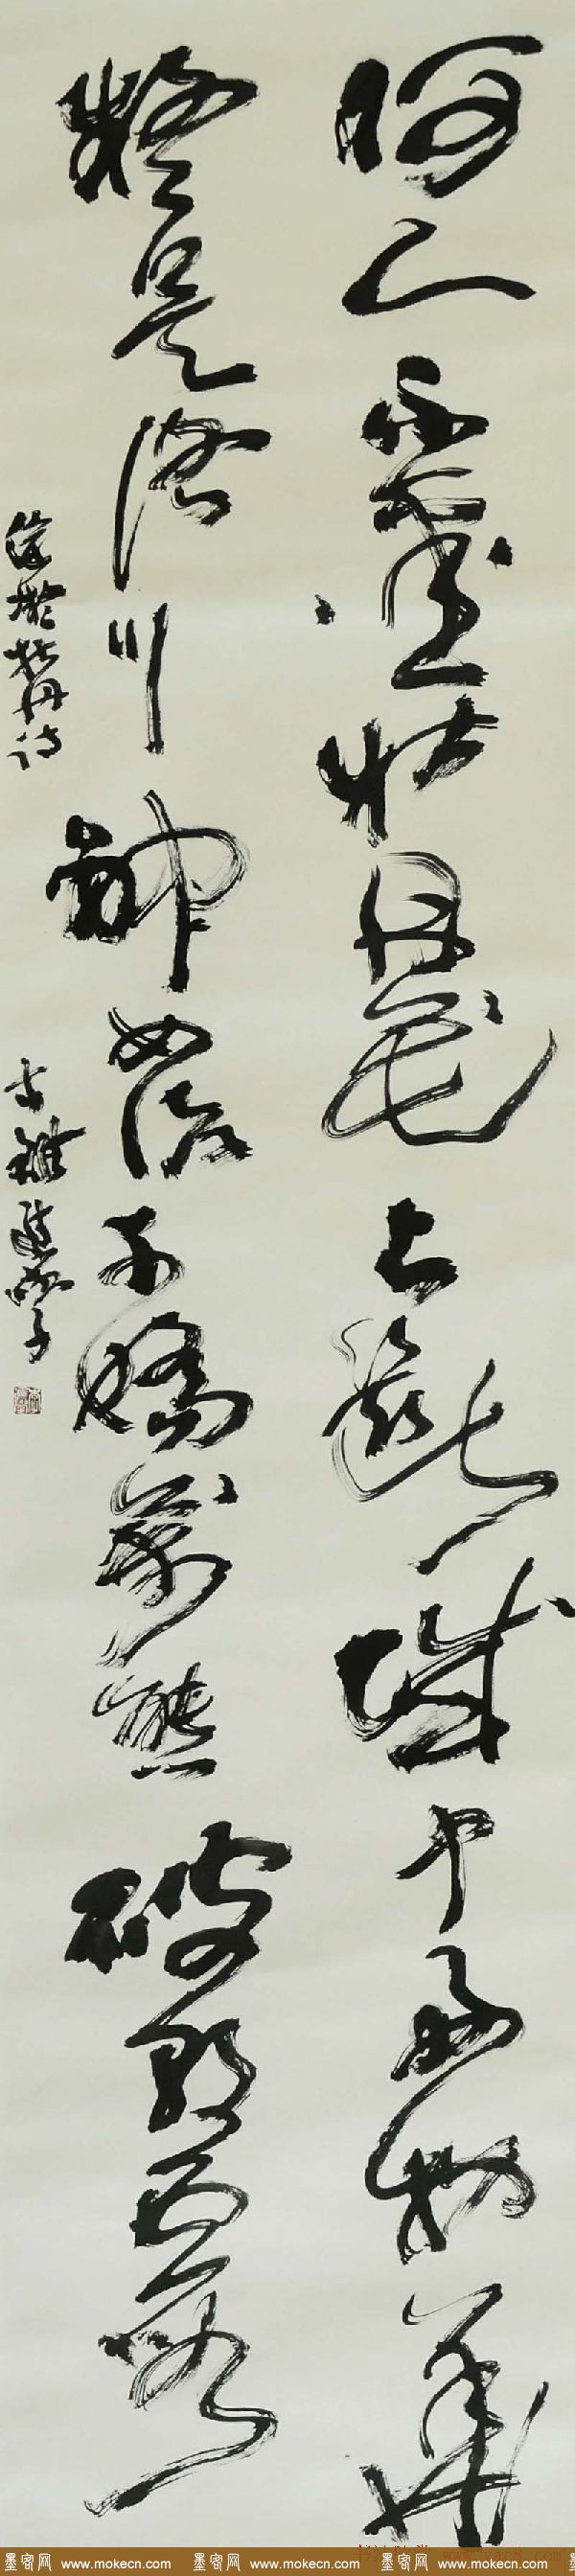 何人不爱牡丹花占断城中好物华
疑是洛川神女作千娇万态破朝霞
徐凝牡丹诗
墨客网 www.mokecn.com 墨客网 www.mokecn.com 墨客网 www.mokecn.com